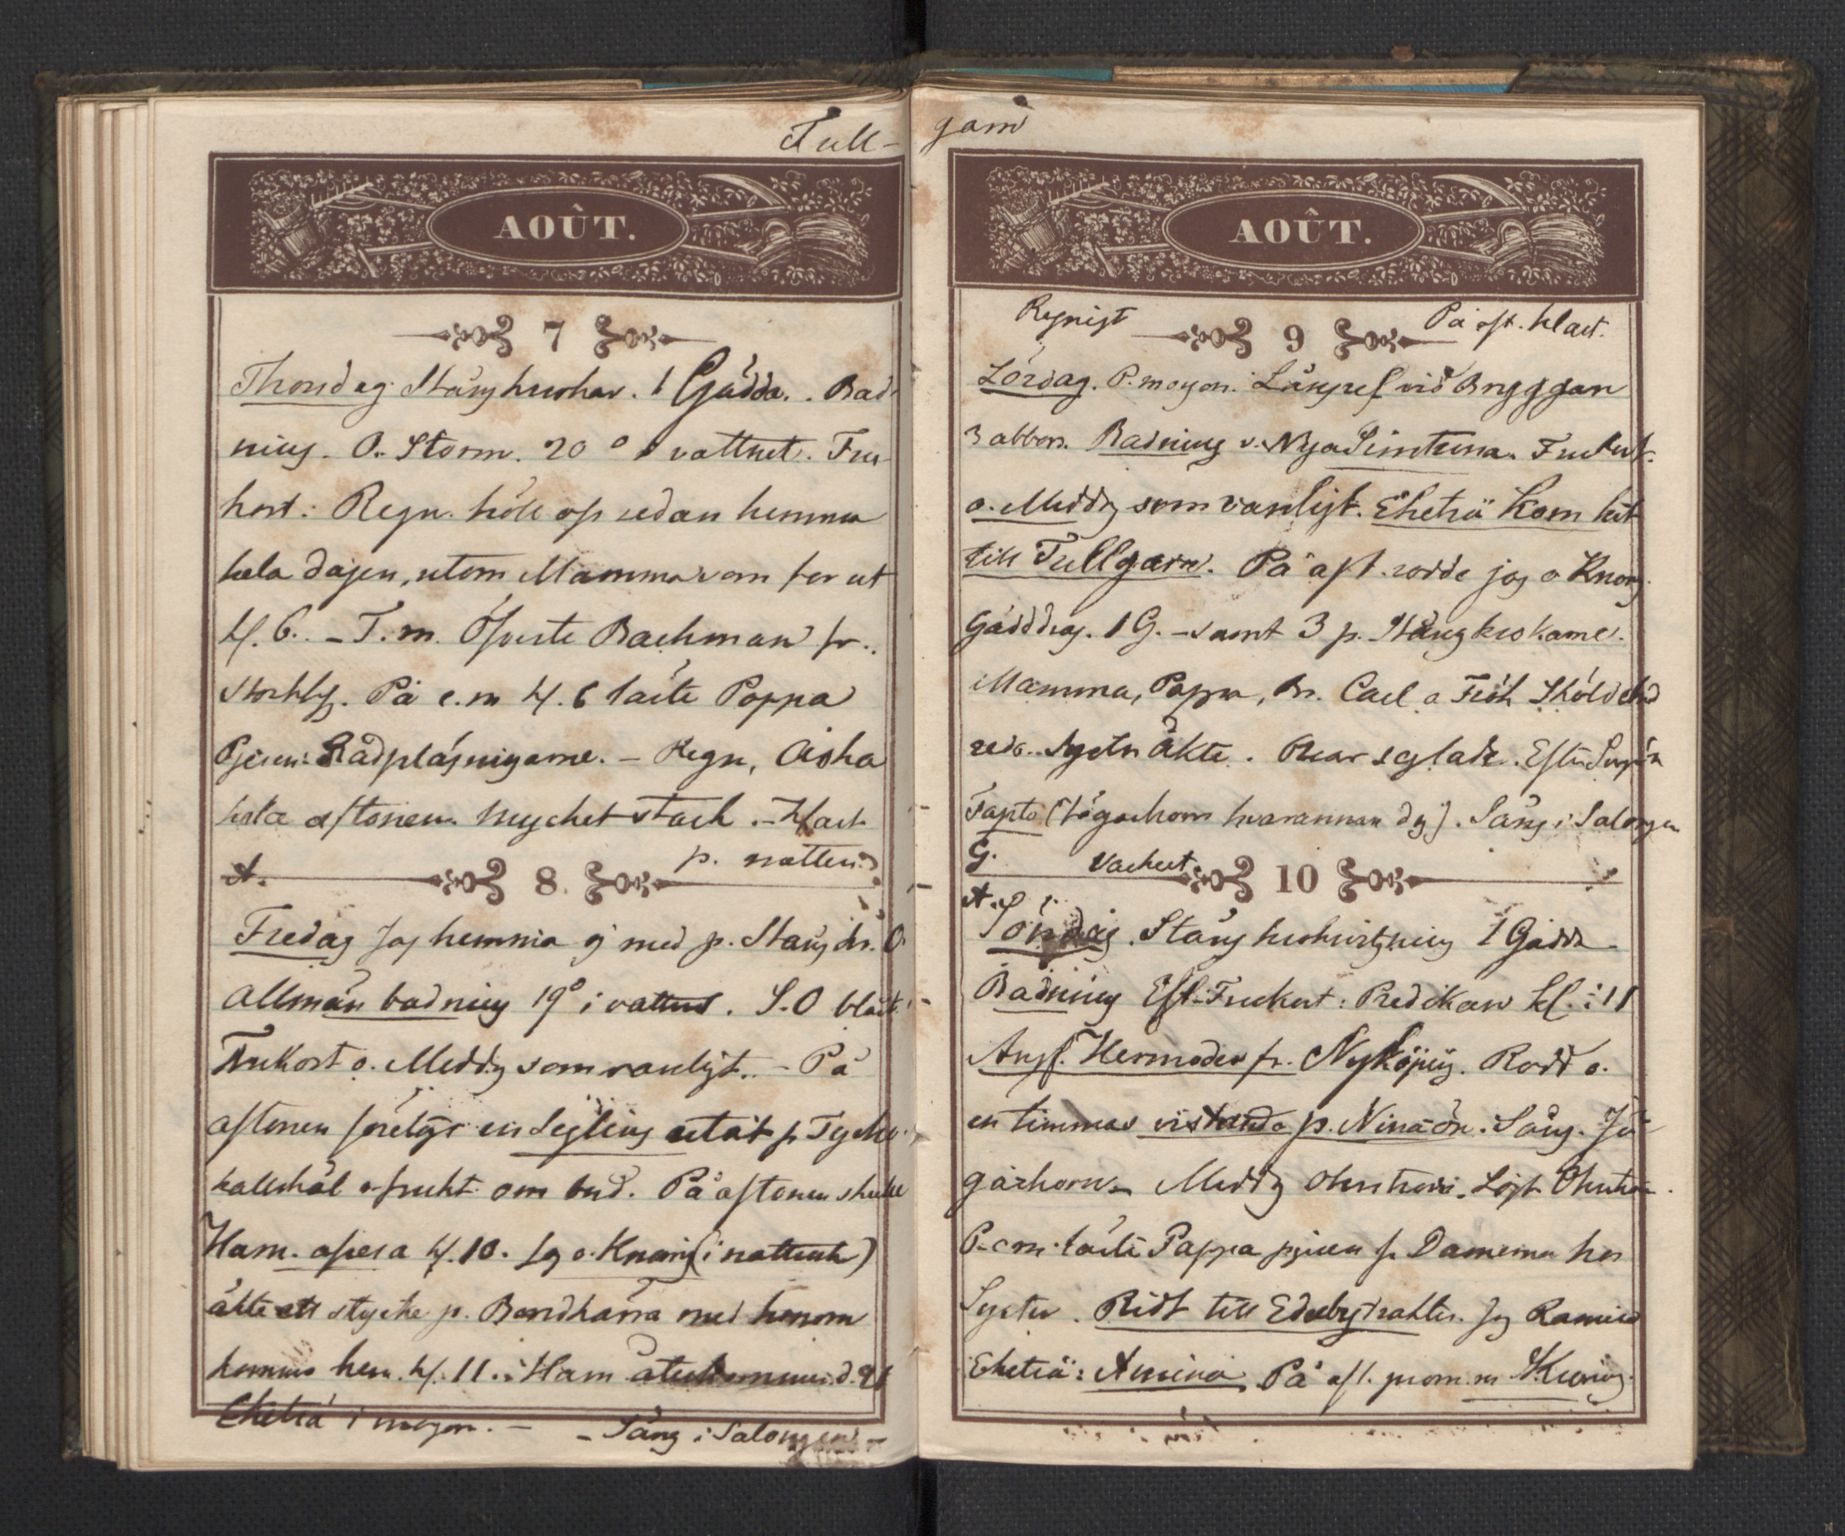 Tull-
AOÛT.
7
Thorsdag. Stångkrokar. 1 Gädda. Bad-
ning. O. Storm. 20° i vattnet. Fru-
kost: Regn. höll op sedan hemma
hela dagen, utom Mamma som for ut
kl. 6. - T. m. Öfverste Bachman fr.
Stockh. På e.m kl. 6 läste Pappa
Pjesen: - Regn, Åska
hela aftonen mycket stark. - Klart
p. natten.
A.
8.
Fredag Jag hemma ej med p. Stångkr. O.
Allmän badning 19° i vattnet. S.O blåst
Frukost o. Midd. som vanligt. - På
aftonen företogs en Segling utåt
frukt om bord. På aftonen
Ham. kl. 10. Jag o. Knorring (i nattrock)
åkte ett stycke p. Bondkärra med honom
kommo hem. kl. 11. Ham återkommer d. 21
Eketrä i morgon. - - Sång i Salongen -
garn
AOÛT.
Regnigt
9
På aft. klart.
Lördag. P. morgon. Långref vid Bryggan
3 abborr. Badning v. Nya Simtrena. Frukost.
o. Midd. som vanligt. Eketrä kom hit
till Tullgarn. På aft. rodde jag o Knorr.
Gäddrag. 1 G. - samt 3 p. Stångkrokarne.
Mamma, Pappa, Br. Carl o Frök Sköldebrand
redo. Syster åkte. Oscar seglade. Efter Supén
Tapto (Jägarhorn hvarannan dag). Sång i Salongen
G.
Vackert.
10
A.
Söndag. Stångkrokvittjning 1 Gädda
Badning Eft. Frukost: Predikan kl. 11
Angf. Hermoder fr. Nyköping. Rodd o.
en timmas vistande p. Ninaön. Sång. Jä-
garhorn. Midd. Löjt.
P. e m. läste Pappa pjesen f. Damerna hos
Syster. Ridt till Edeby trakten. Jag Ramiro
Eketrä: Amina På aft. prom. m Knorring.